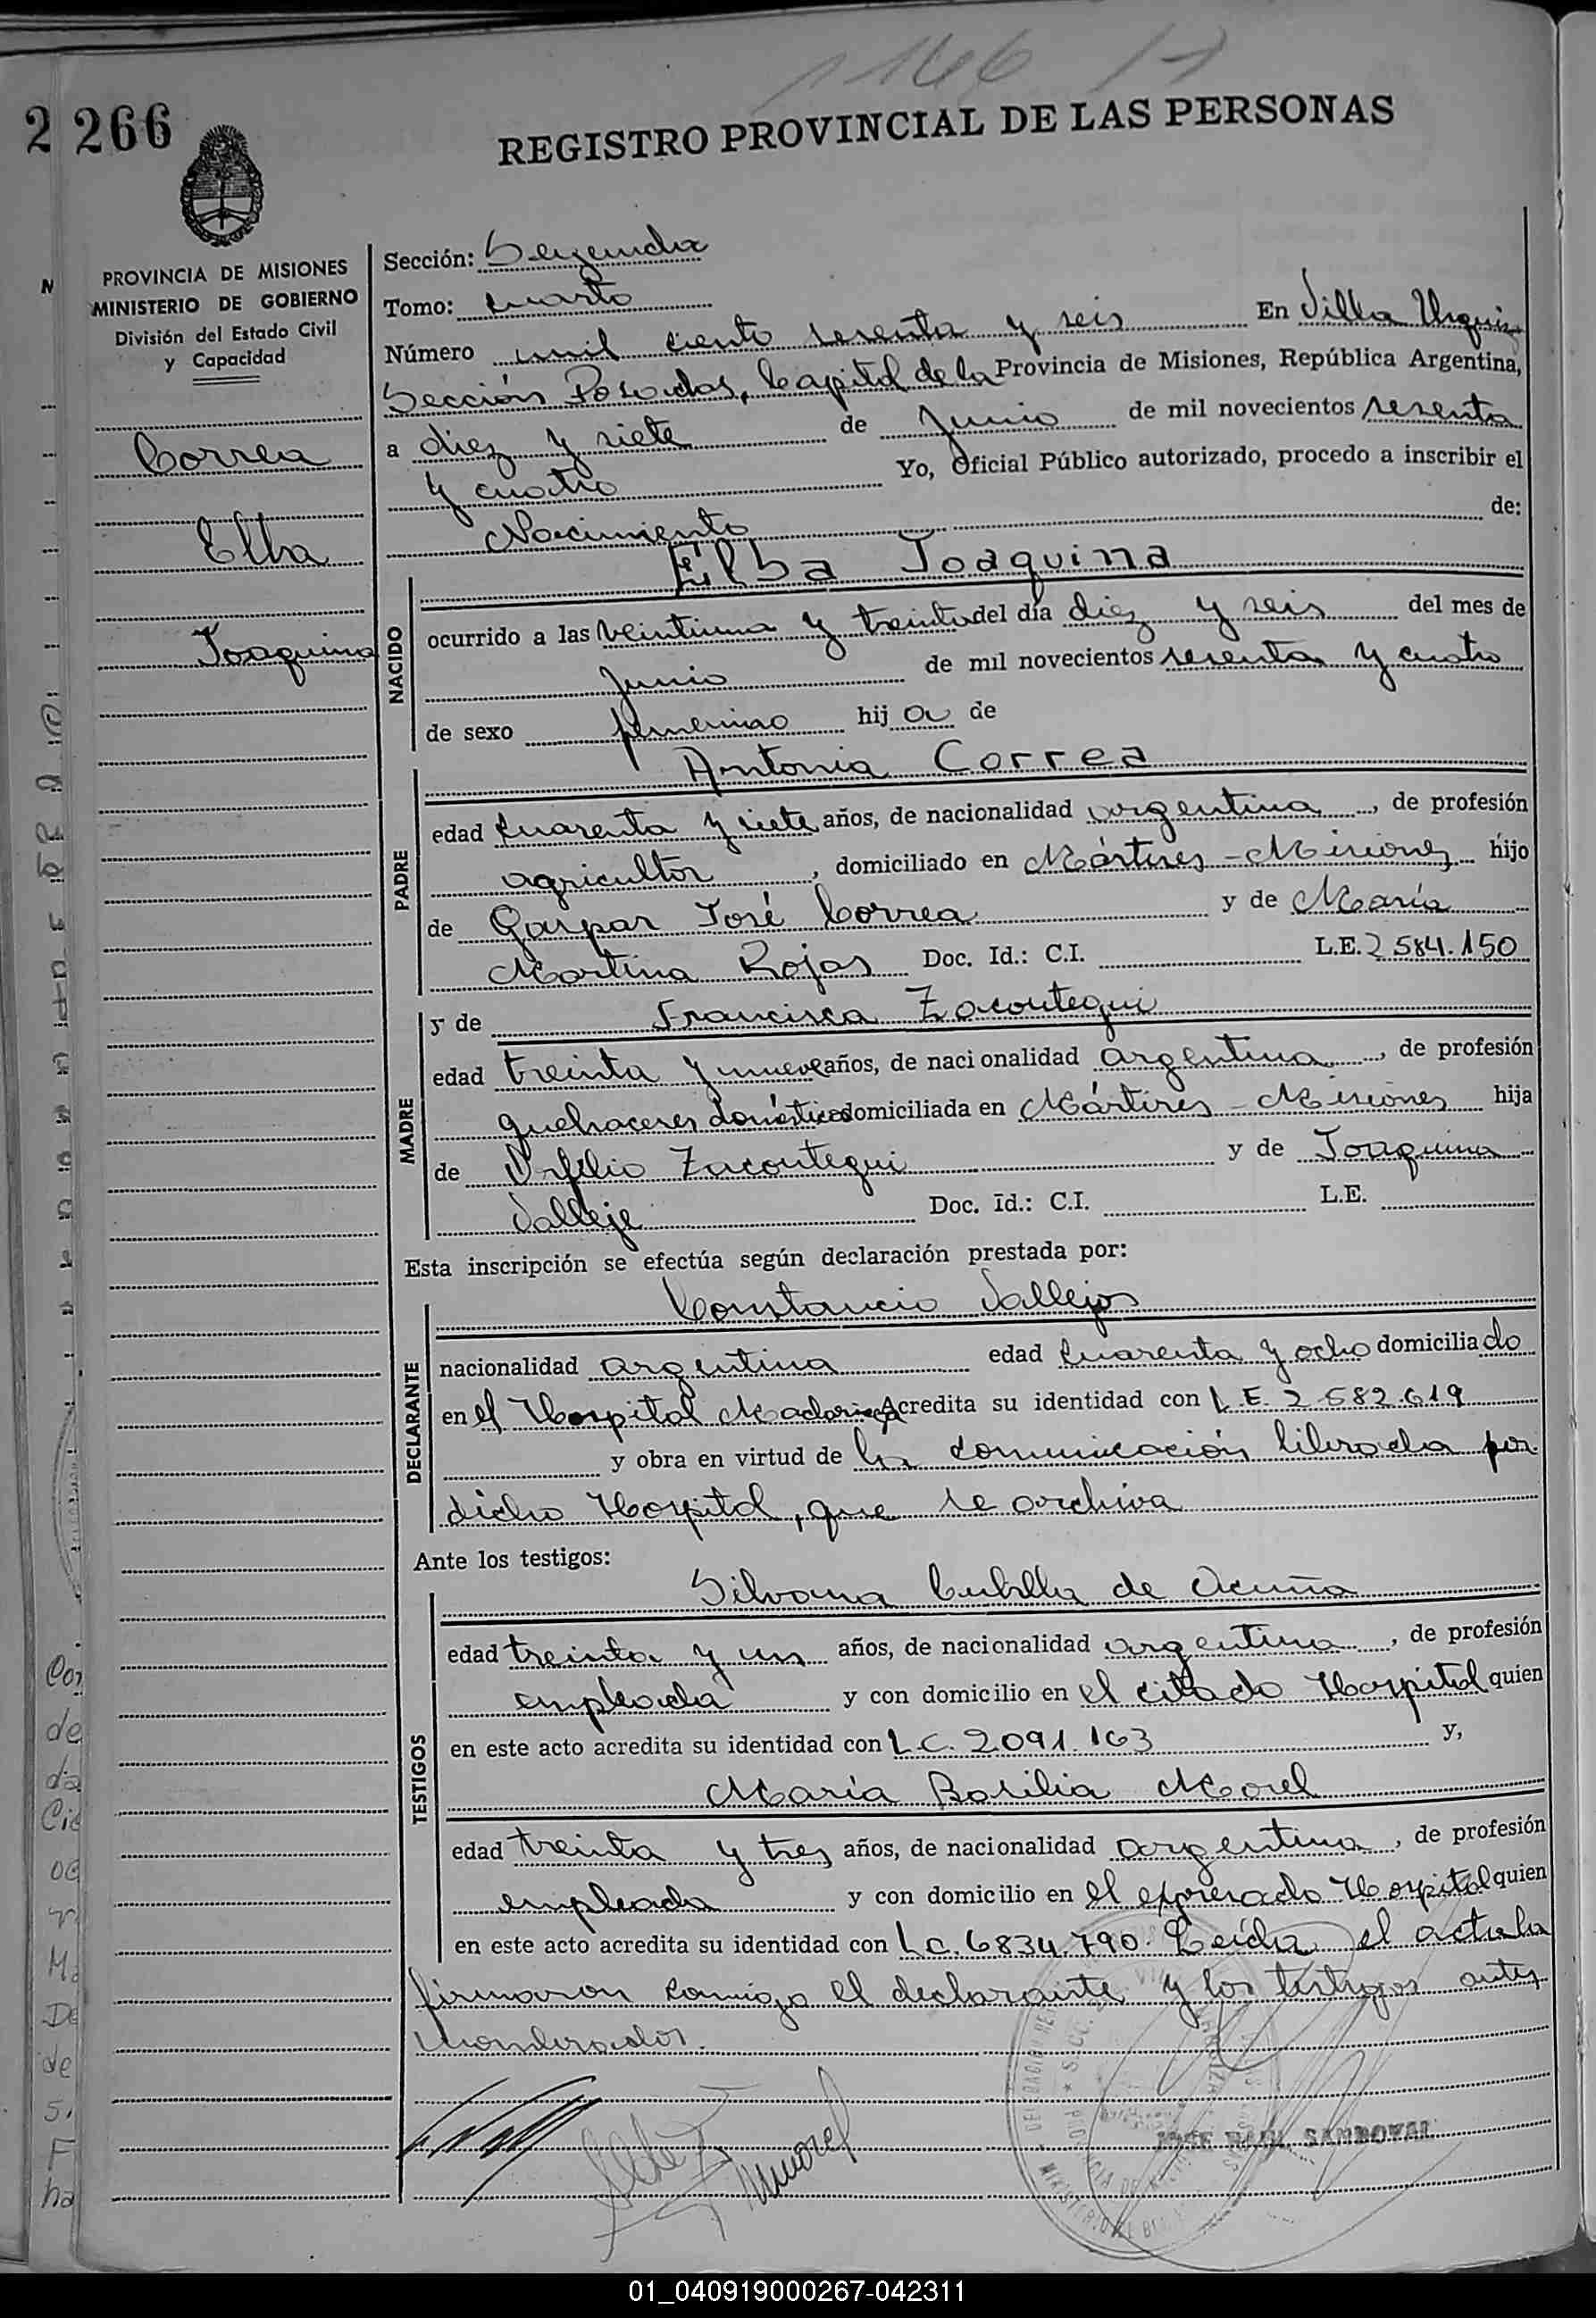 1166 H
2 266
REGISTRO PROVINCIAL DE LAS PERSONAS
PROVINCIA DE MISIONES
MINISTERIO DE GOBIERNO
División del Estado Civil
y Capacidad
Correa
Elba
Joaquina
Sección: Segunda
Tomo: cuarto
Número mil ciento sesenta y seis En Villa Urquiza
Sección Posadas, Capital de la Provincia de Misiones, República Argentina,
a diez y siete de Junio de mil novecientos sesenta
y cuatro Yo, Oficial Público autorizado, procedo a inscribir el
Nacimiento de:
Elba Joaquina
NACIDO
ocurrido a las veintiuna y treinta del día diez y seis del mes de
Junio de mil novecientos sesenta y cuatro
de sexo femenino hija de
Antonia Correa
PADRE
edad cuarenta y siete años, de nacionalidad argentina, de profesión
agricultor, domiciliado en Mártires - Misiones hijo
de Gaspar José Correa y de María
Martina Rojas Doc. Id.: C.I. L.E. 2584.150
y de Francisca Zacoutegui
MADRE
edad treinta y nueve años, de nacionalidad argentina, de profesión
quehaceres domésticos domiciliada en Mártires - Misiones hija
de Zacoutegui y de Joaquina
Valleje Doc. Id.: C.I. L.E.
Esta inscripción se efectúa según declaración prestada por:
Constancio Vallejos
DECLARANTE
nacionalidad argentina edad cuarenta y ocho domiciliado
en el Hospital Madariaga Acredita su identidad con L.E. 2.582.619
y obra en virtud de la comunicación librada por
dicho Hospital, que se archiva
Ante los testigos:
Silvana Cubilla de Acuña
TESTIGOS
edad treinta y un años, de nacionalidad argentina, de profesión
empleada y con domicilio en el citado Hospital quien
en este acto acredita su identidad con L.C. 2.091.163 y,
María Basilia Morel
edad treinta y tres años, de nacionalidad argentina, de profesión
empleada y con domicilio en el expresado Hospital quien
en este acto acredita su identidad con L.C. 6834.790. Leída el acta la
firmaron conmigo el declarante y los testigos antes
nombrados.
JOSE RAUL SANDOVAL
01_040919000267-042311